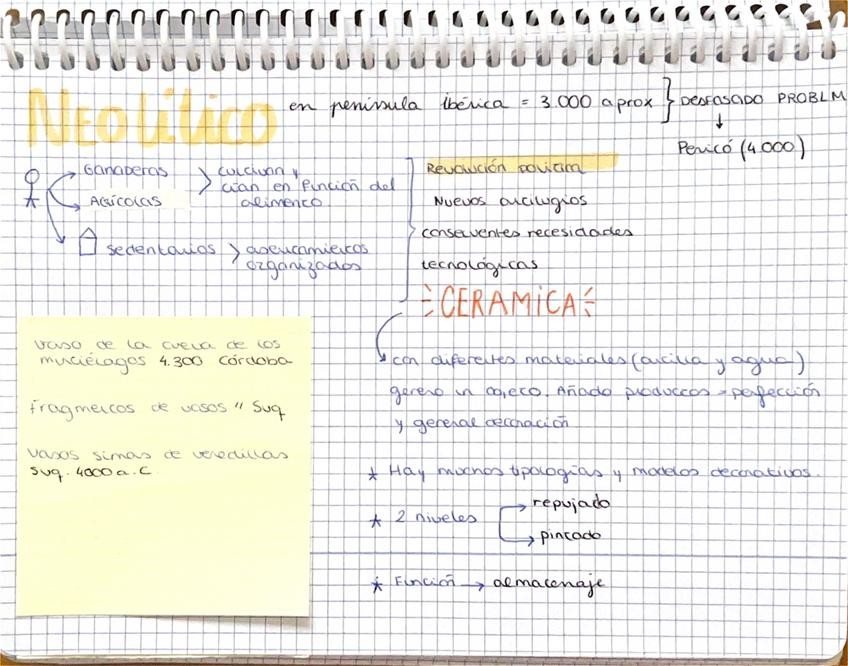 Neolítico en península ibérica = 3.000 aprox } DESFASADO PROBLM
↓
Pericó (4.000)
Ganaderas
Agrícolas
> cultivan y
crian en función del
alimento
sedentarios > asentamientos
organizados
Revolución
Nuevos artilugios
conserventes necesidades
tecnológicas
CERAMICA
con diferentes materiales (arcilla y agua)
genero un objeto. Añado productos = perfección
y general decoración
* Hay muchos tipologías y modelos decorativos.
* 2 niveles
repujado
pintado
* Función → almacenaje
vaso de la cueva de los
murciélagos 4.300 Córdoba
Fragmentos de vasos " Sug
vasos simas de veredillas
Sug. 4000 a.C.